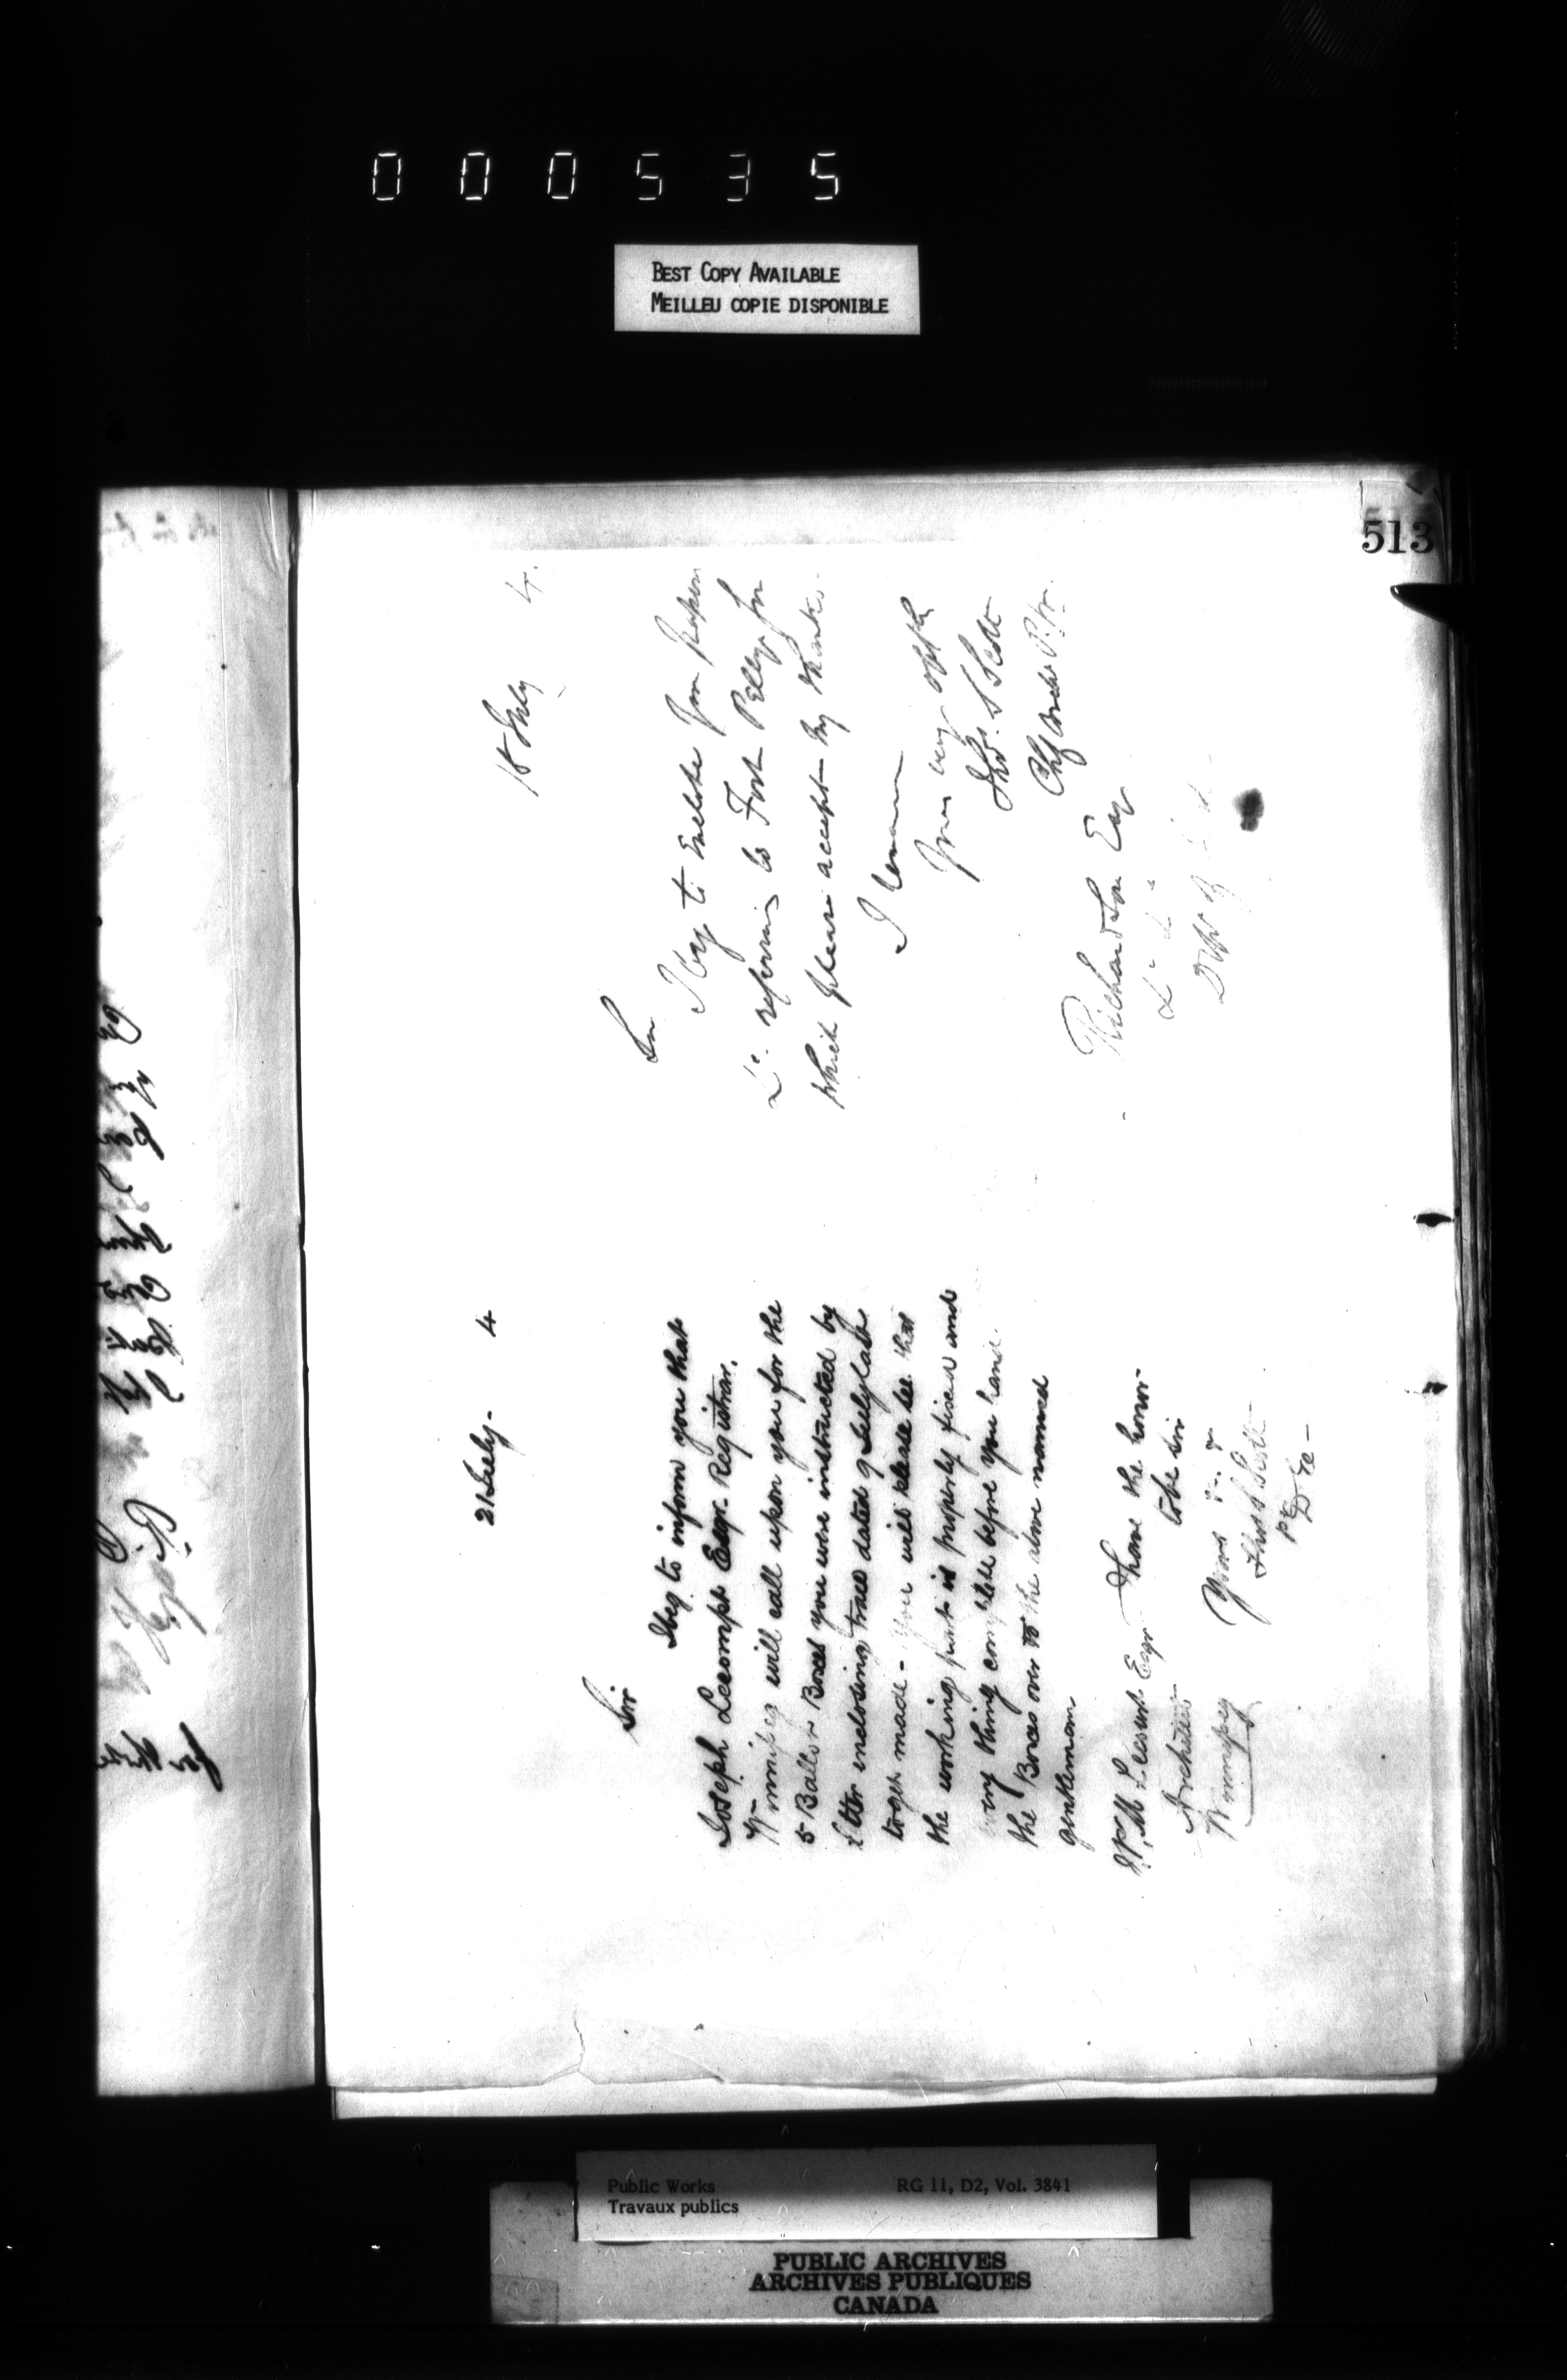 000535
BEST COPY AVAILABLE
MEILLEU COPIE DISPONIBLE
513
21 July - 4
Sir
I beg to inform you that
Joseph Lecompt Esqr. Registrar.
Winnipeg will call upon you for the
5 Ballot Boxes you were instructed by
letter enclosing trace dated 9 July last
to get made - you will please see that
the working parts is properly fixed and
every thing complete before you hand
the Boxes over to the above named
gentleman
I have the honor
to be Sir
Yours
Thos S Scott
J.P.M. Lecourt Esqr
Architect
Winnipeg
18 July 4.
Sir
I beg to enclose your papers
&c. referring to Fort Pelly for
which please accept my thanks.
I remain
Yours very
Thos. S Scott
Chf Archt P.W.
Richardson Esq
&c &c
Public Works
Travaux publics
RG 11, D2, Vol. 3841
PUBLIC ARCHIVES
ARCHIVES PUBLIQUES
CANADA